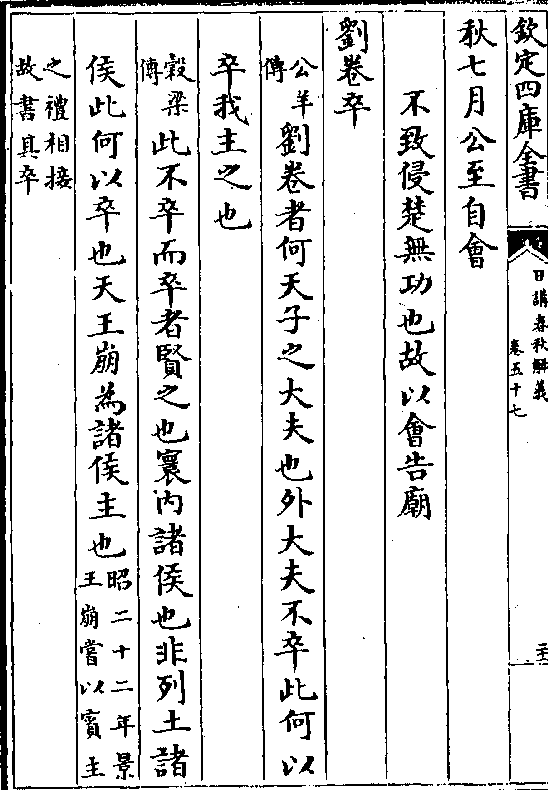 欽定四庫全書
日講春秋解義
卷五十七
秋七月公至自會
不致侵楚無功也故以會告廟
劉卷卒
公羊
傳
劉卷者何天子之大夫也外大夫不卒此何以
卒我主之也
穀梁
傳
此不卒而卒者賢之也寰內諸侯也非列土諸
侯此何以卒也天王崩為諸侯主也
昭二十二年景
王崩嘗以賓主
之禮相接
故書其卒